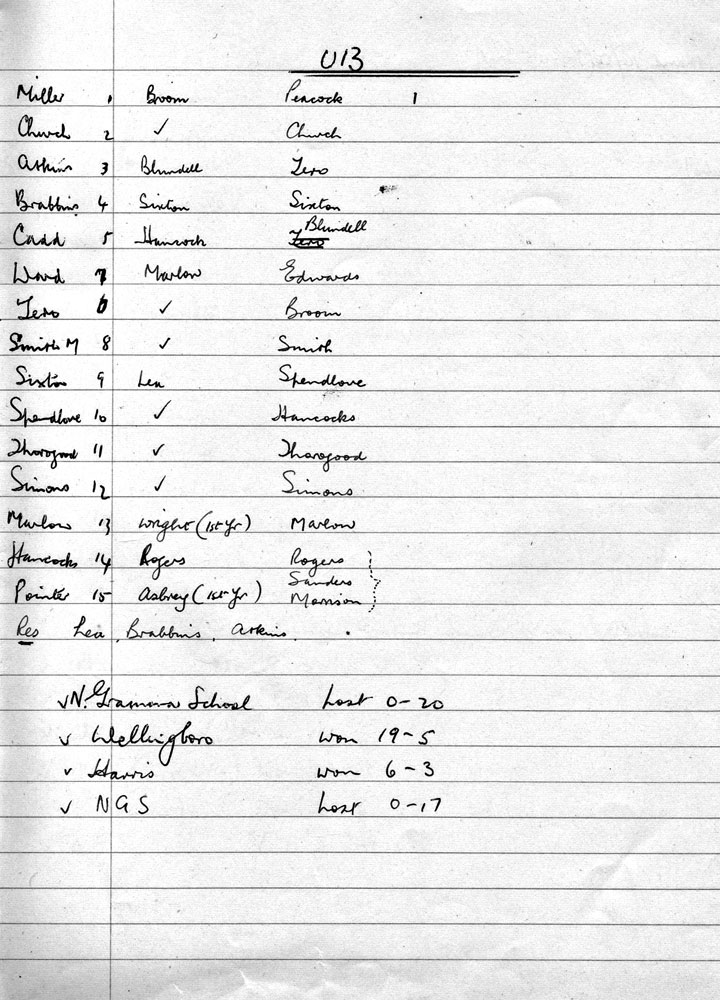 U13
Miller 1 Broom Peacock 1
Church 2 ✓ Church
Atkins 3 Blundell Tero
Brabbins 4 Sixton Sixton
Cadd 5 Hancock Tero Blundell
Ward 7 Marlow Edwards
Tero 6 ✓ Broom
Smith M 8 ✓ Smith
Sixton 9 Lea Spendlove
Spendlove 10 ✓ Hancocks
Thorogood 11 ✓ Thorogood
Simons 12 ✓ Simons
Marlow 13 Wright (1st Yr) Marlow
Hancocks 14 Rogers Rogers
Sanders
Pointer 15 Asbrey (1st Yr) Morrison
Res Lea, Brabbins, Atkins.
✓ N. Grammar School Lost 0-20
✓ Wellingboro won 19-5
✓ Harris won 6-3
✓ NGS Lost 0-17